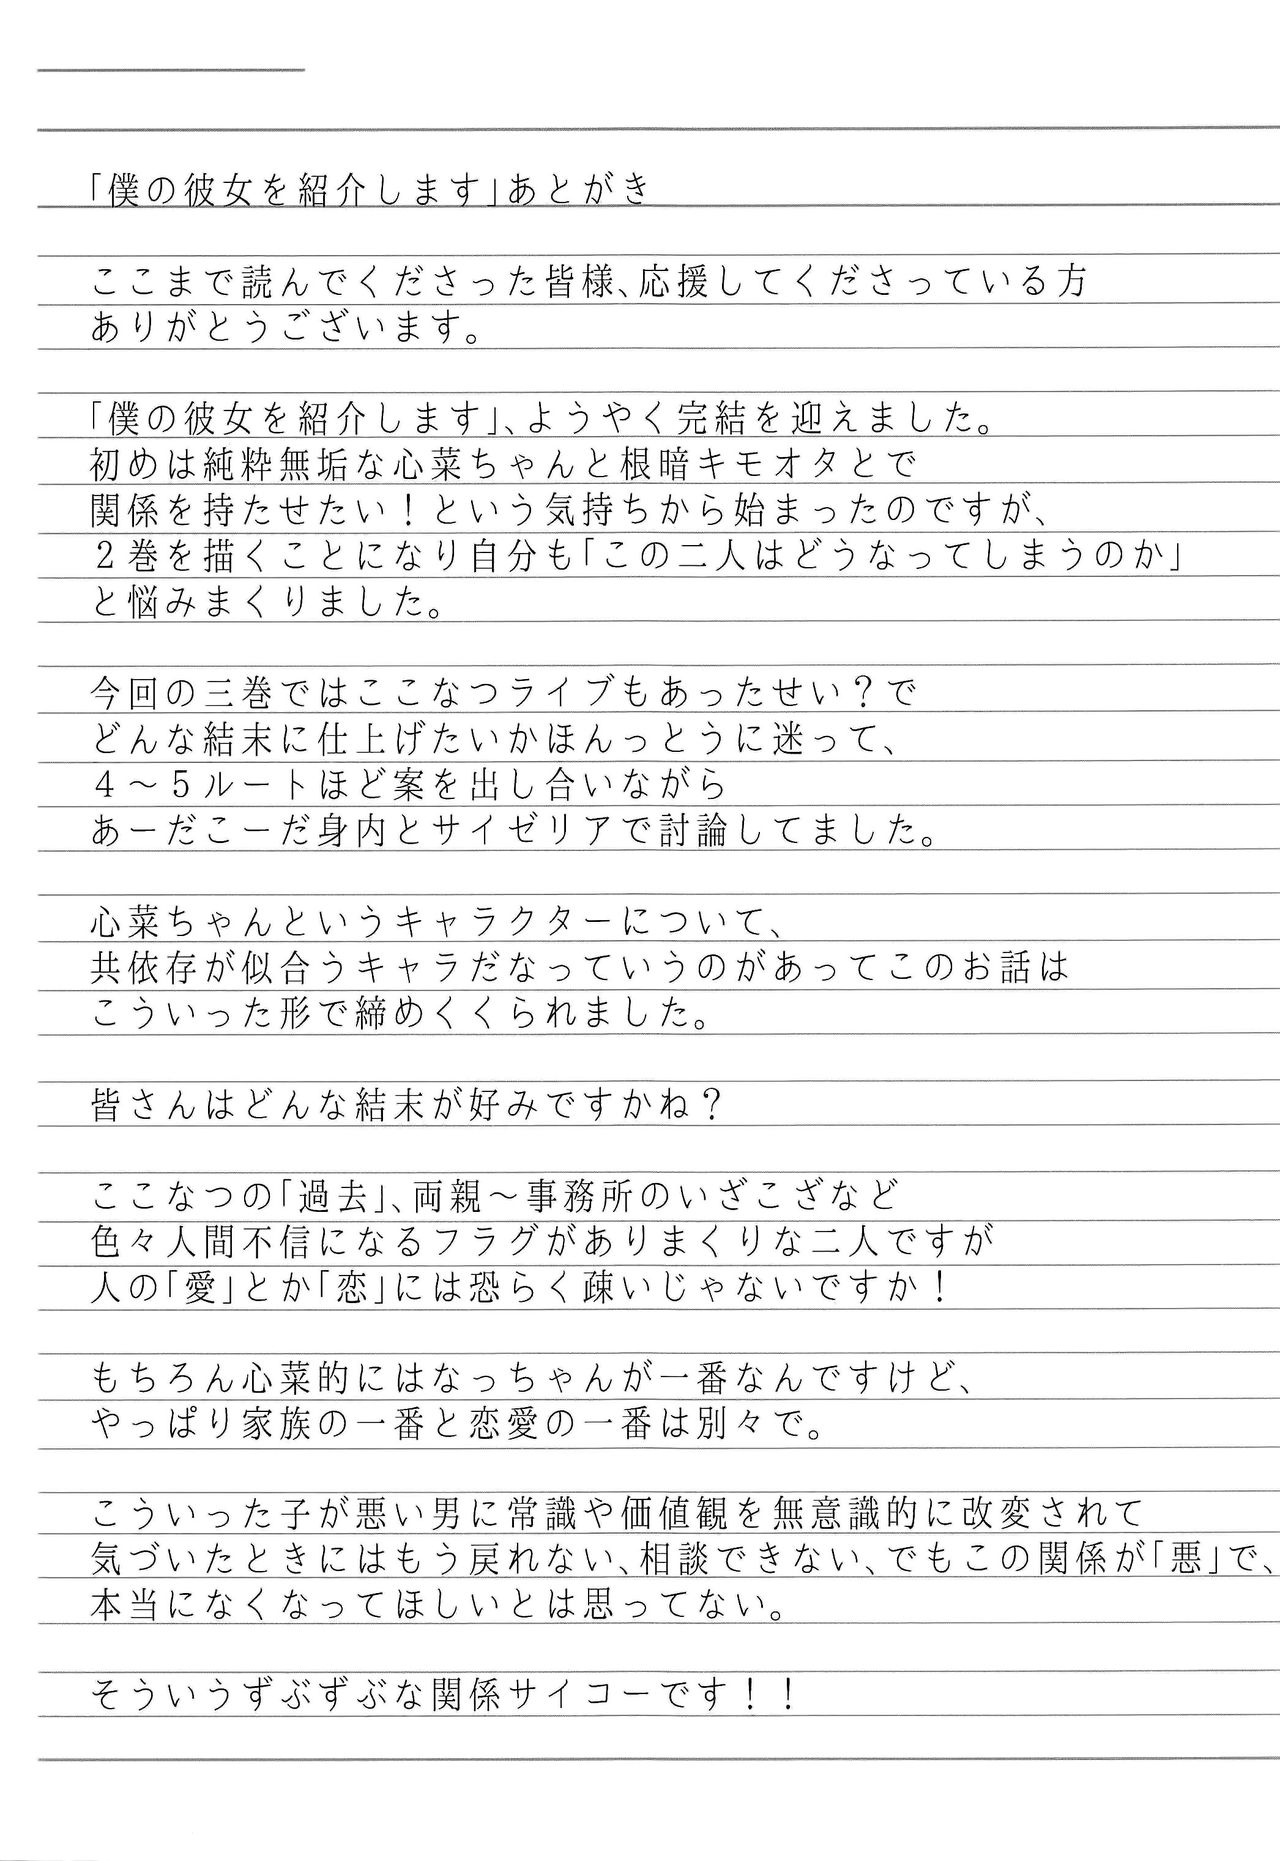 「僕の彼女を紹介します」あとがき
ここまで読んでくださった皆様、応援してくださっている方
ありがとうございます。
「僕の彼女を紹介します」、ようやく完結を迎えました。
初めは純粋無垢な心菜ちゃんと根暗キモオタとで
関係を持たせたい！という気持ちから始まったのですが、
２巻を描くことになり自分も「この二人はどうなってしまうのか」
と悩みまくりました。
今回の三巻ではここなつライブもあったせい？で
どんな結末に仕上げたいかほんっとうに迷って、
４～５ルートほど案を出し合いながら
あーだこーだ身内とサイゼリアで討論してました。
心菜ちゃんというキャラクターについて、
共依存が似合うキャラだなっていうのがあってこのお話は
こういった形で締めくくられました。
皆さんはどんな結末が好みですかね？
ここなつの「過去」、両親～事務所のいざこざなど
色々人間不信になるフラグがありまくりな二人ですが
人の「愛」とか「恋」には恐らく疎いじゃないですか！
もちろん心菜的にはなっちゃんが一番なんですけど、
やっぱり家族の一番と恋愛の一番は別々で。
こういった子が悪い男に常識や価値観を無意識的に改変されて
気づいたときにはもう戻れない、相談できない、でもこの関係が「悪」で、
本当になくなってほしいとは思ってない。
そういうずぶずぶな関係サイコーです！！